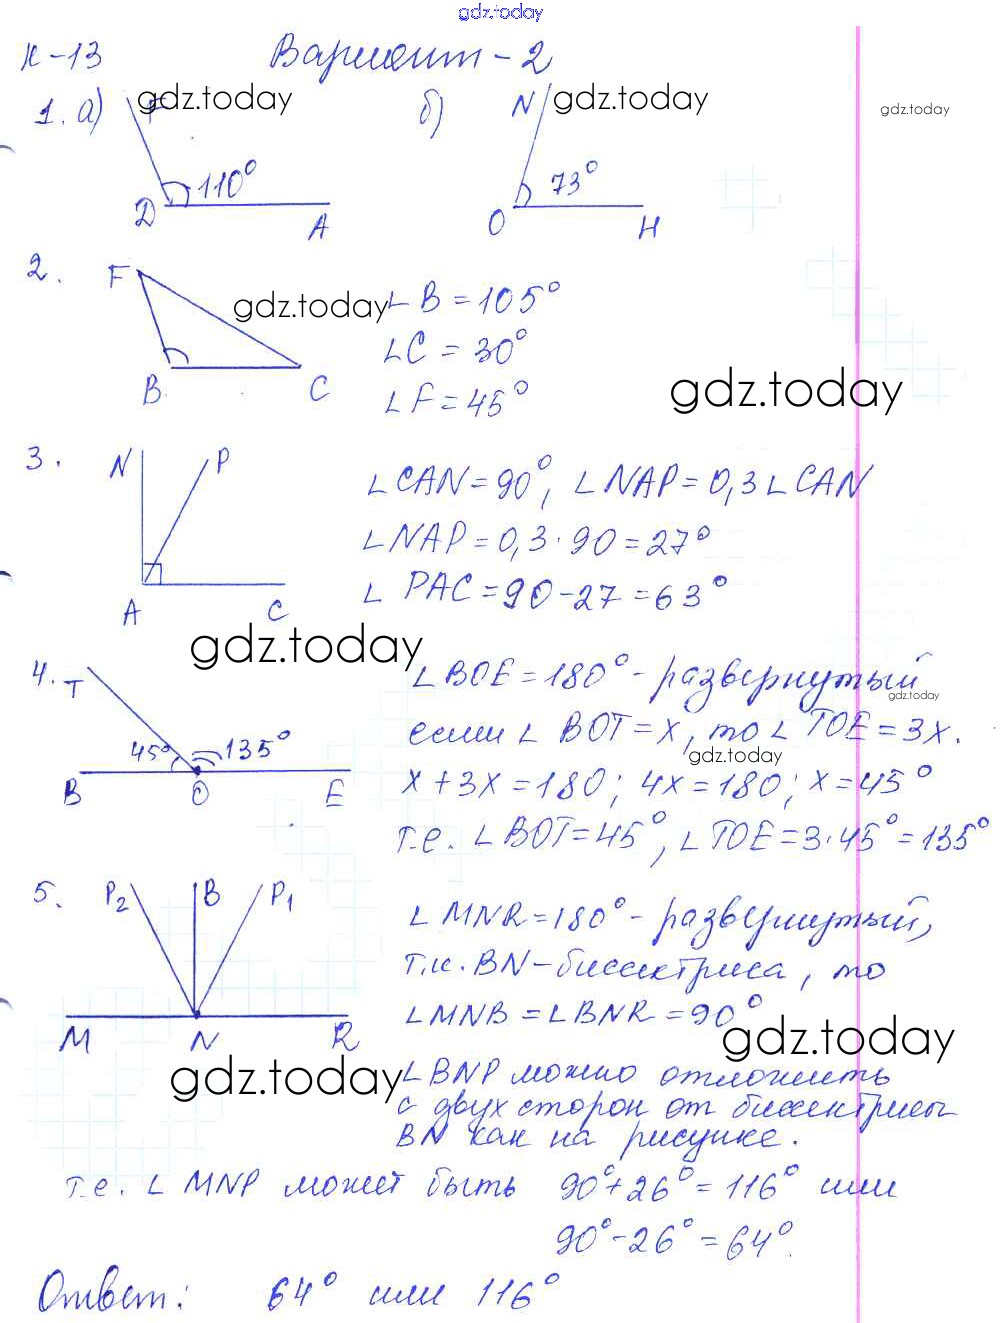 gdz.today
К-13 Вариант-2
1. а) F gdz.today б) N gdz.today
gdz.today
110° 73°
D A O H
2. F
gdz.today ∠B = 105°
∠C = 30°
gdz.today
B C ∠F = 45°
3. N P ∠CAN = 90°, ∠NAP = 0,3∠CAN
∠NAP = 0,3·90 = 27°
∠PAC = 90 - 27 = 63°
A C
gdz.today
4. T ∠BOE = 180° - развернутый
gdz.today
если ∠BOT = x, то ∠TOE = 3x.
45° 135° gdz.today
B O E x + 3x = 180; 4x = 180; x = 45°
т.е. ∠BOT = 45°, ∠TOE = 3·45° = 135°
5. P₂ B P₁ ∠MNR = 180° - развернутый,
т.к. BN - биссектриса, то
∠MNB = ∠BNR = 90°
M N R gdz.today
gdz.today ∠BNP можно отложить
с двух сторон от биссектрисы
BN как на рисунке.
т.е. ∠MNP может быть 90° + 26° = 116° или
90° - 26° = 64°.
Ответ: 64° или 116°